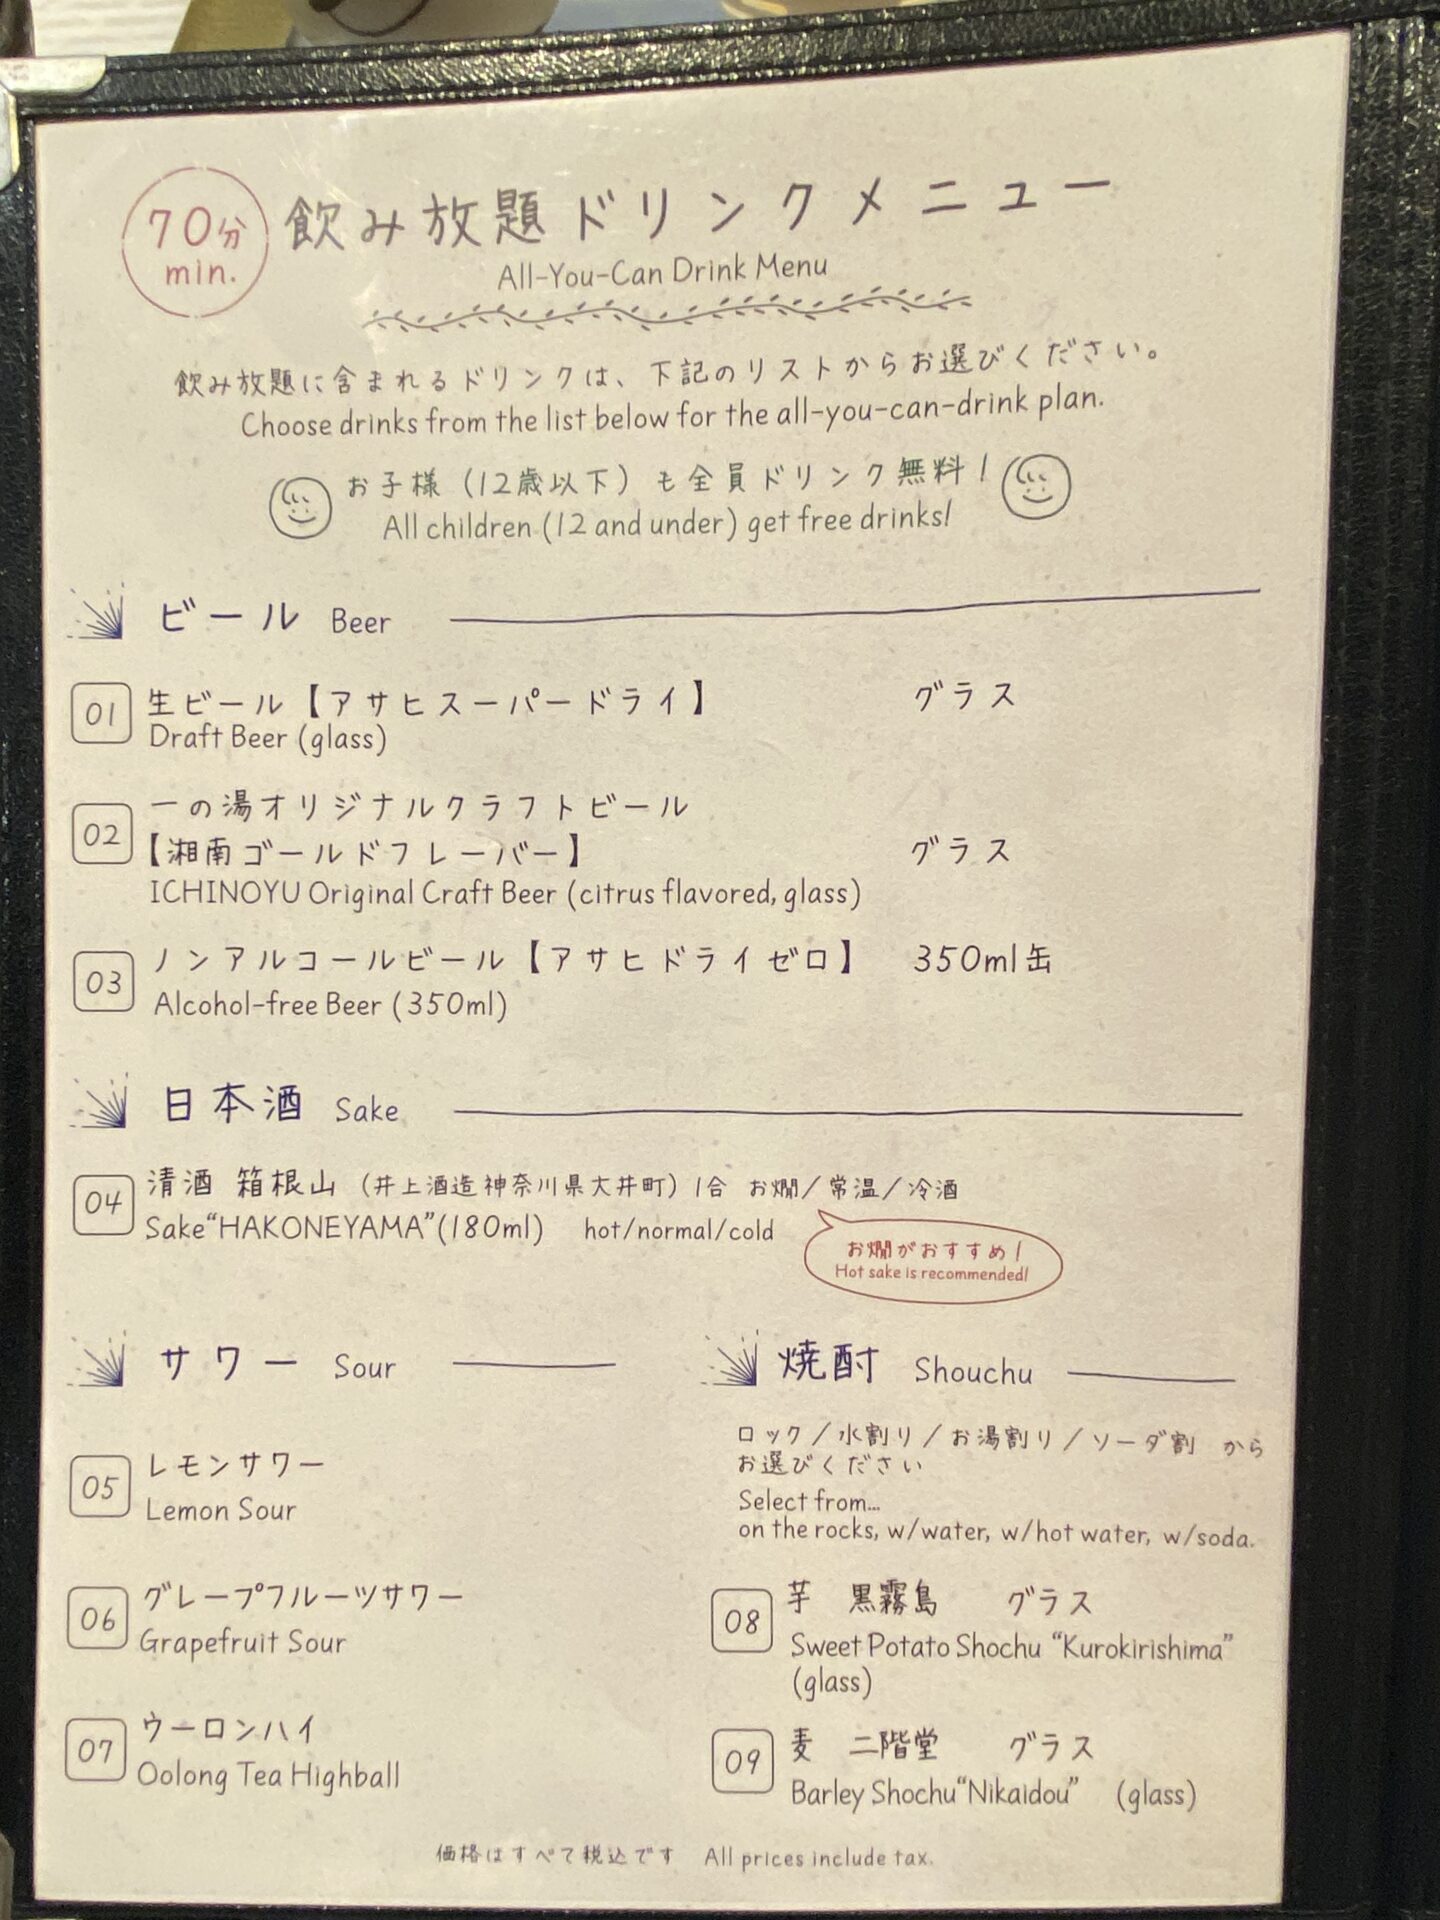 70分
min.
飲み放題ドリンクメニュー
All-You-Can Drink Menu
飲み放題に含まれるドリンクは、下記のリストからお選びください。
Choose drinks from the list below for the all-you-can-drink plan.
お子様（12歳以下）も全員ドリンク無料！
All children (12 and under) get free drinks!
ビール Beer
01 生ビール【アサヒスーパードライ】 グラス
Draft Beer (glass)
一の湯オリジナルクラフトビール
02 【湘南ゴールドフレーバー】 グラス
ICHINOYU Original Craft Beer (citrus flavored, glass)
03 ノンアルコールビール【アサヒドライゼロ】 350ml缶
Alcohol-free Beer (350ml)
日本酒 Sake
04 清酒 箱根山 （井上酒造神奈川県大井町）1合 お燗／常温／冷酒
Sake“HAKONEYAMA”(180ml) hot/normal/cold
お燗がおすすめ！
Hot sake is recommended!
サワー Sour
05 レモンサワー
Lemon Sour
06 グレープフルーツサワー
Grapefruit Sour
07 ウーロンハイ
Oolong Tea Highball
焼酎 Shouchu
ロック／水割り／お湯割り／ソーダ割 から
お選びください
Select from...
on the rocks, w/water, w/hot water, w/soda.
08 芋 黒霧島 グラス
Sweet Potato Shochu “Kurokirishima”
(glass)
09 麦 二階堂 グラス
Barley Shochu“Nikaidou” (glass)
価格はすべて税込です All prices include tax.